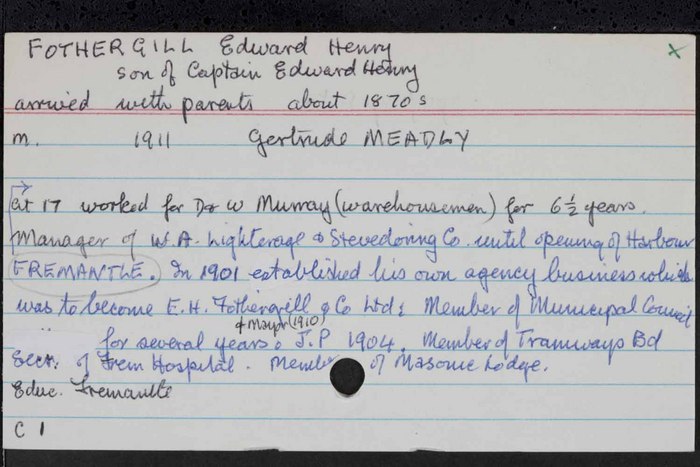 FOTHERGILL Edward Henry x
son of Captain Edward Henry
arrived with parents about 1870s
m. 1911 Gertrude MEADLY
at 17 worked for D & W Murray (warehousemen) for 6½ years.
Manager of W.A. Lighterage & Stevedoring Co. until opening of Harbour
FREMANTLE. In 1901 established his own agency business which
was to become E.H. Fothergill & Co Ltd; Member of Municipal Council
" for several years & Mayor (1910); J.P 1904. Member of Tramways Bd
Secr. of Frem Hospital. Member of Masonic Lodge.
Educ. Fremantle
C 1